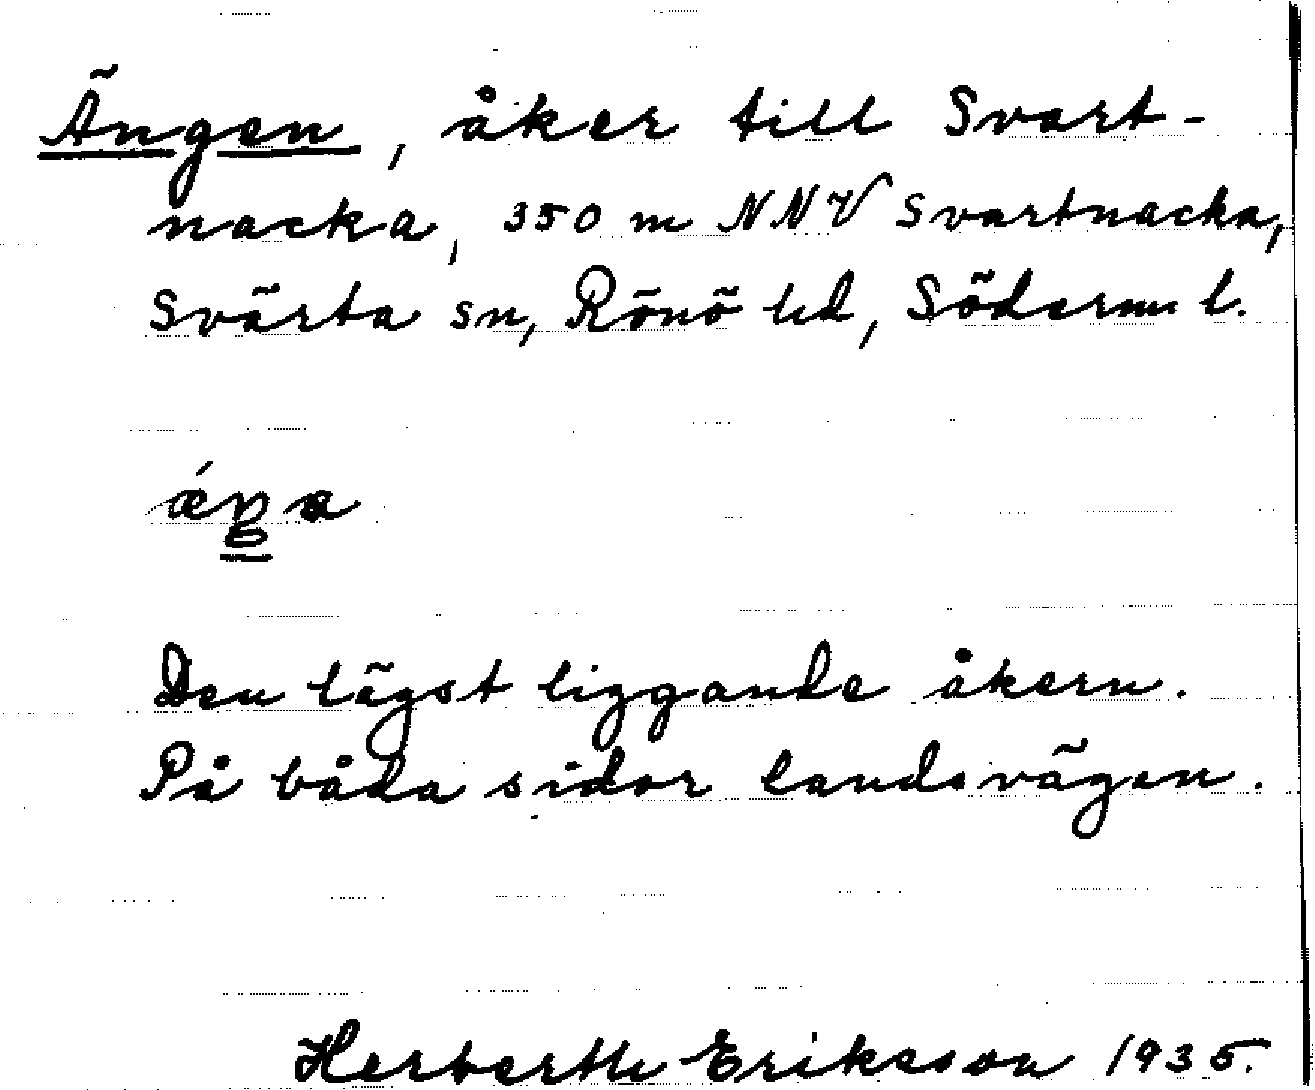 Ängen, åker till Svart-
nacka, 350 m NNV Svartnacka,
Svärta sn, Rönö hd, Söderml.
Den lägst liggande åkern.
På båda sidor landsvägen.
Herberth Eriksson 1935.